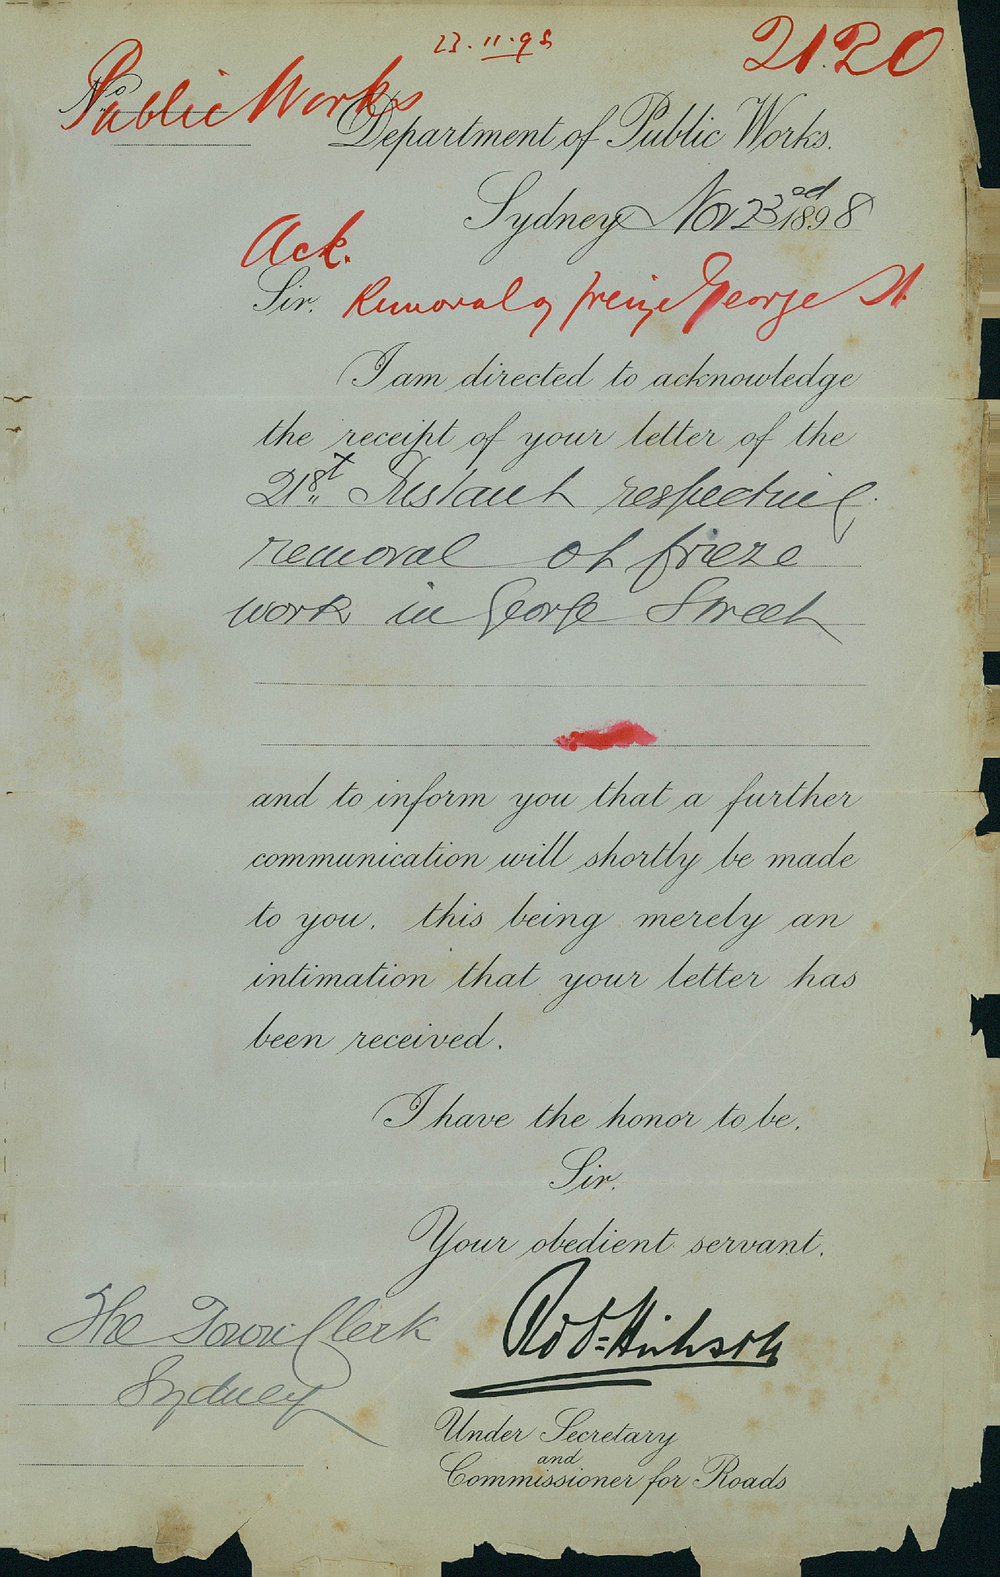 23.11.98
2120
Public Works
No
Department of Public Works.
Sydney Nov 23rd 1898
Ack.
Sir. Removal of frieze George St.
I am directed to acknowledge
the receipt of your letter of the
21st Instant respecting
removal of frieze
work in George Street
and to inform you that a further
communication will shortly be made
to you, this being merely an
intimation that your letter has
been received.
I have the honor to be,
Sir,
Your obedient servant,
The Town Clerk
Sydney
Robt Hickson
Under Secretary
and
Commissioner for Roads